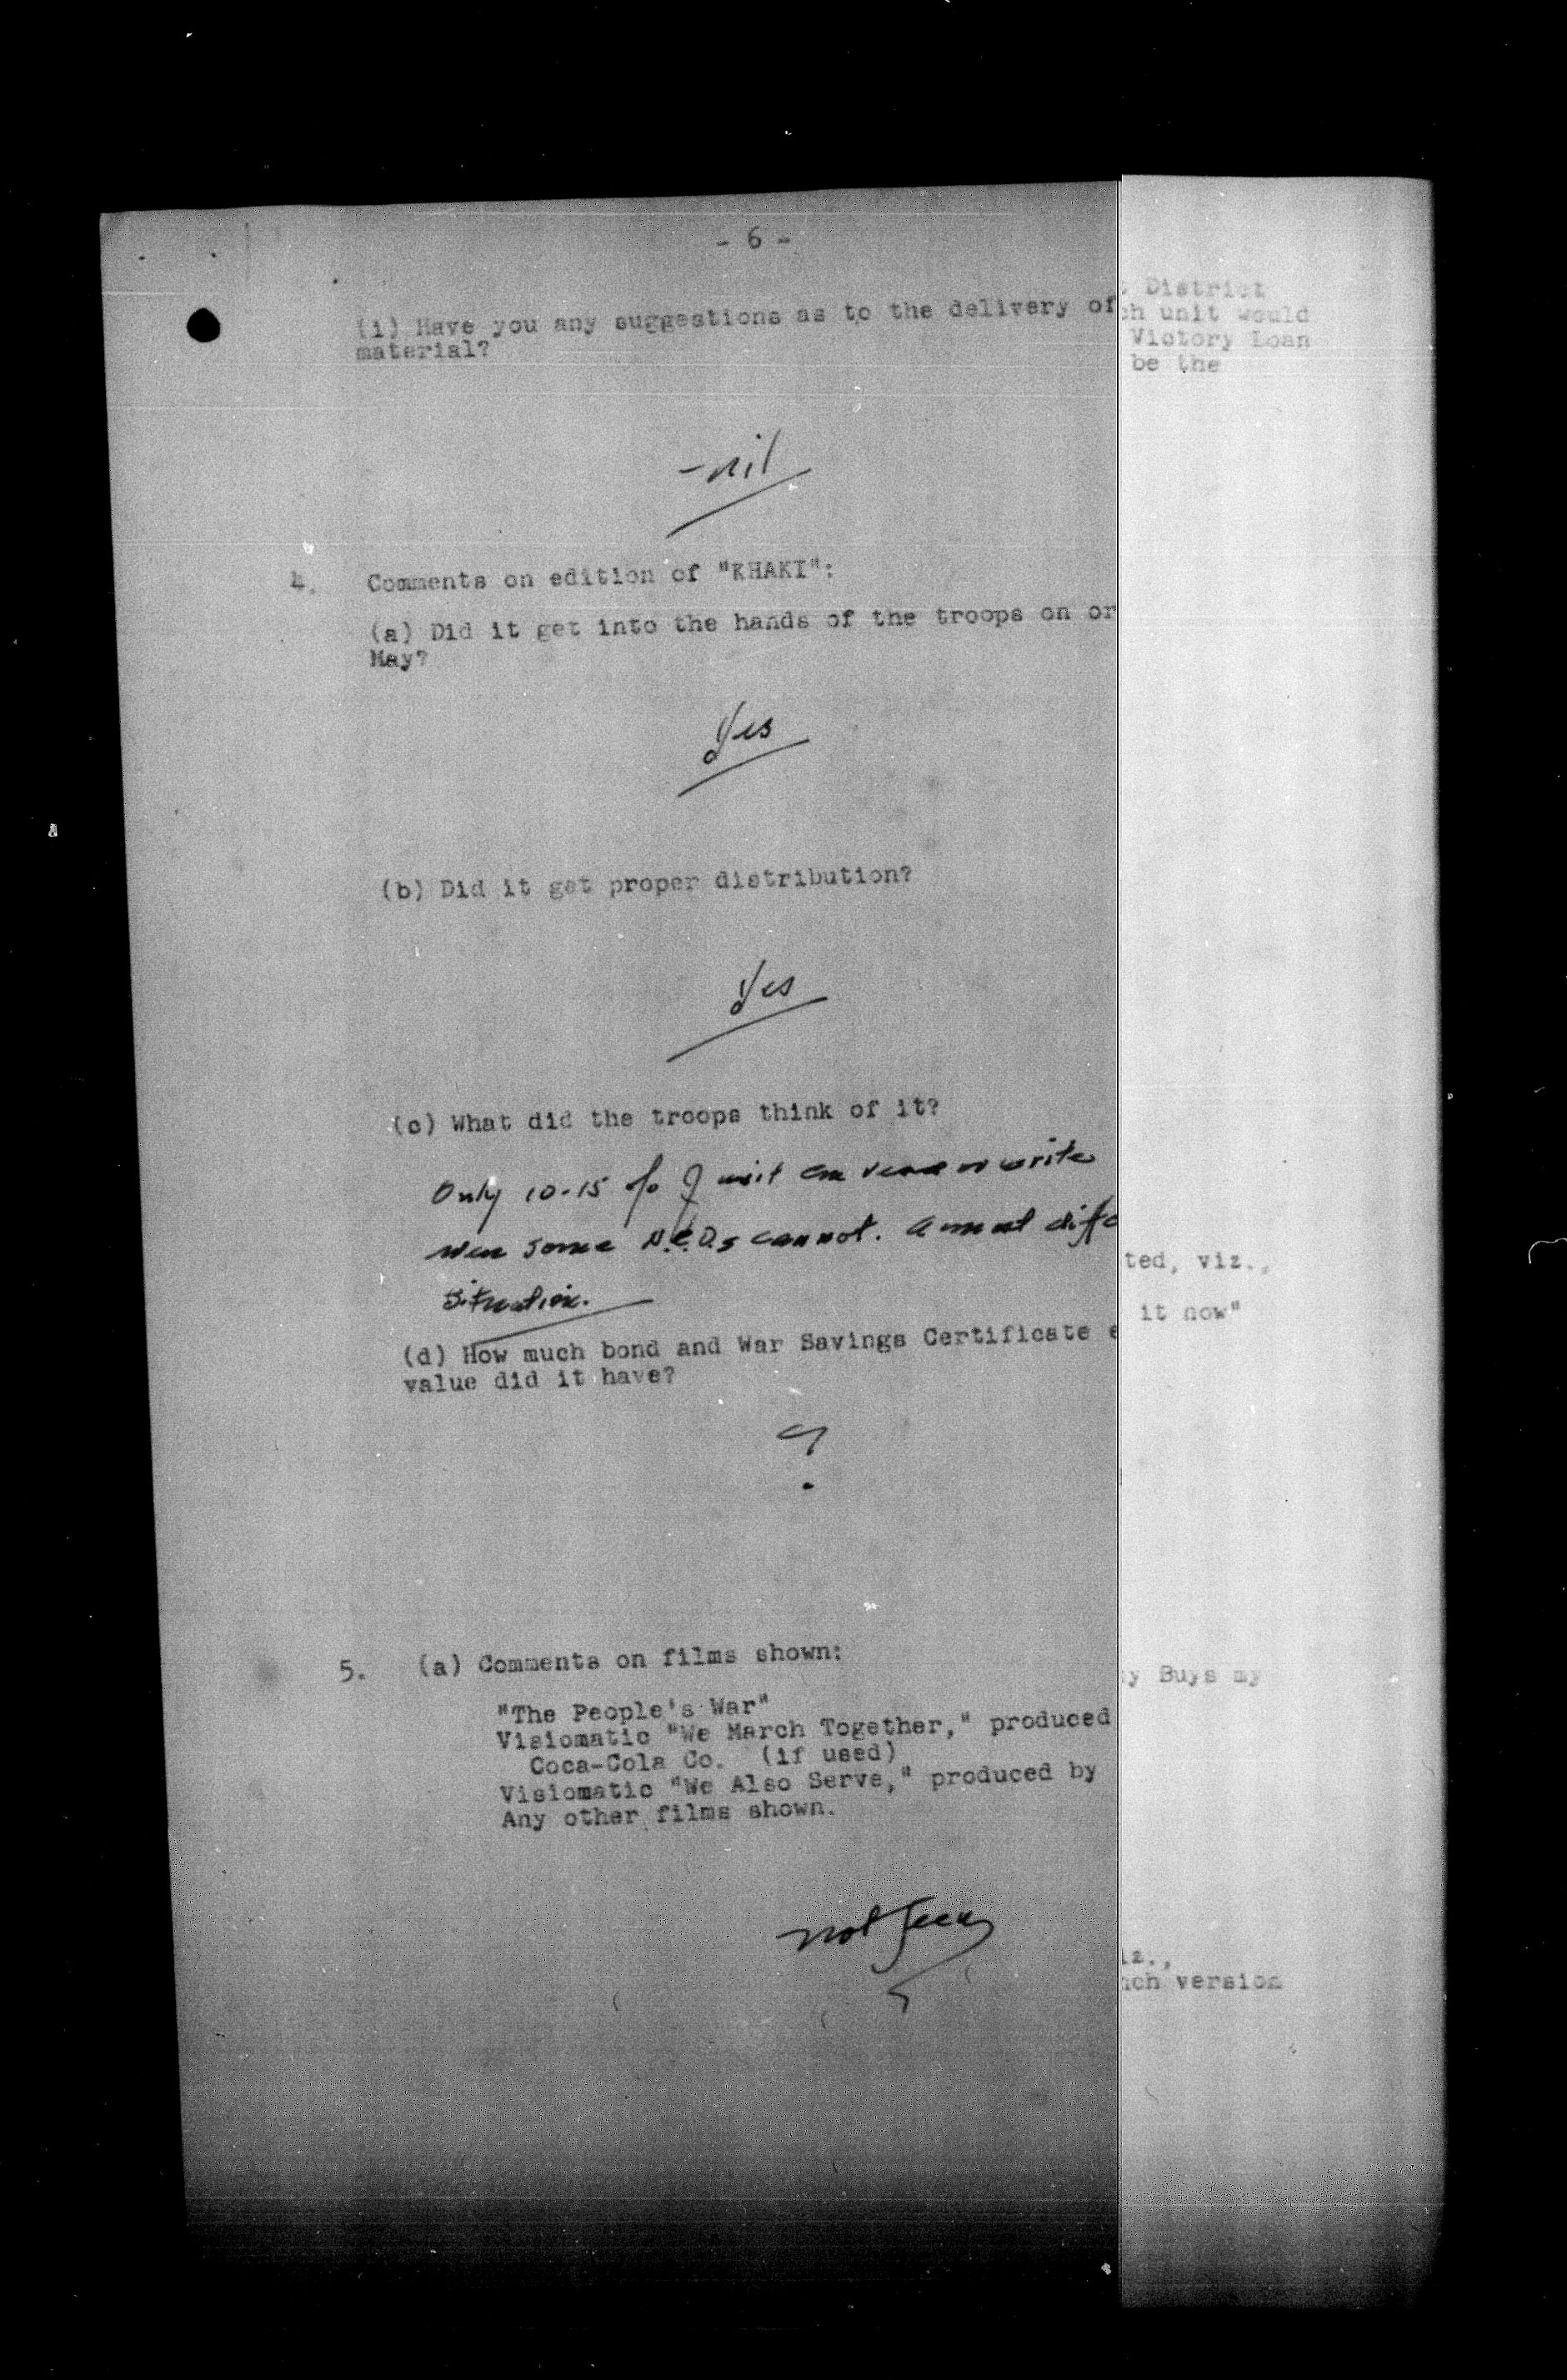 - 6 -
(i) Have you any suggestions as to the delivery of
material?
- nil
4. Comments on edition of "KHAKI":
(a) Did it get into the hands of the troops on or
May?
Yes
(b) Did it get proper distribution?
Yes
(c) What did the troops think of it?
Only 10-15 % of unit can read or write
some N.C.O.s cannot. a
situation.
(d) How much bond and War Savings Certificate
value did it have?
?
5. (a) Comments on films shown:
"The People's War"
Visiomatic "We March Together," produced
Coca-Cola Co. (if used)
Visiomatic "We Also Serve," produced by
Any other films shown.
not seen
District
unit would
Victory Loan
be the
ted, viz.,
it now"
y Buys my
iz.,
nch version